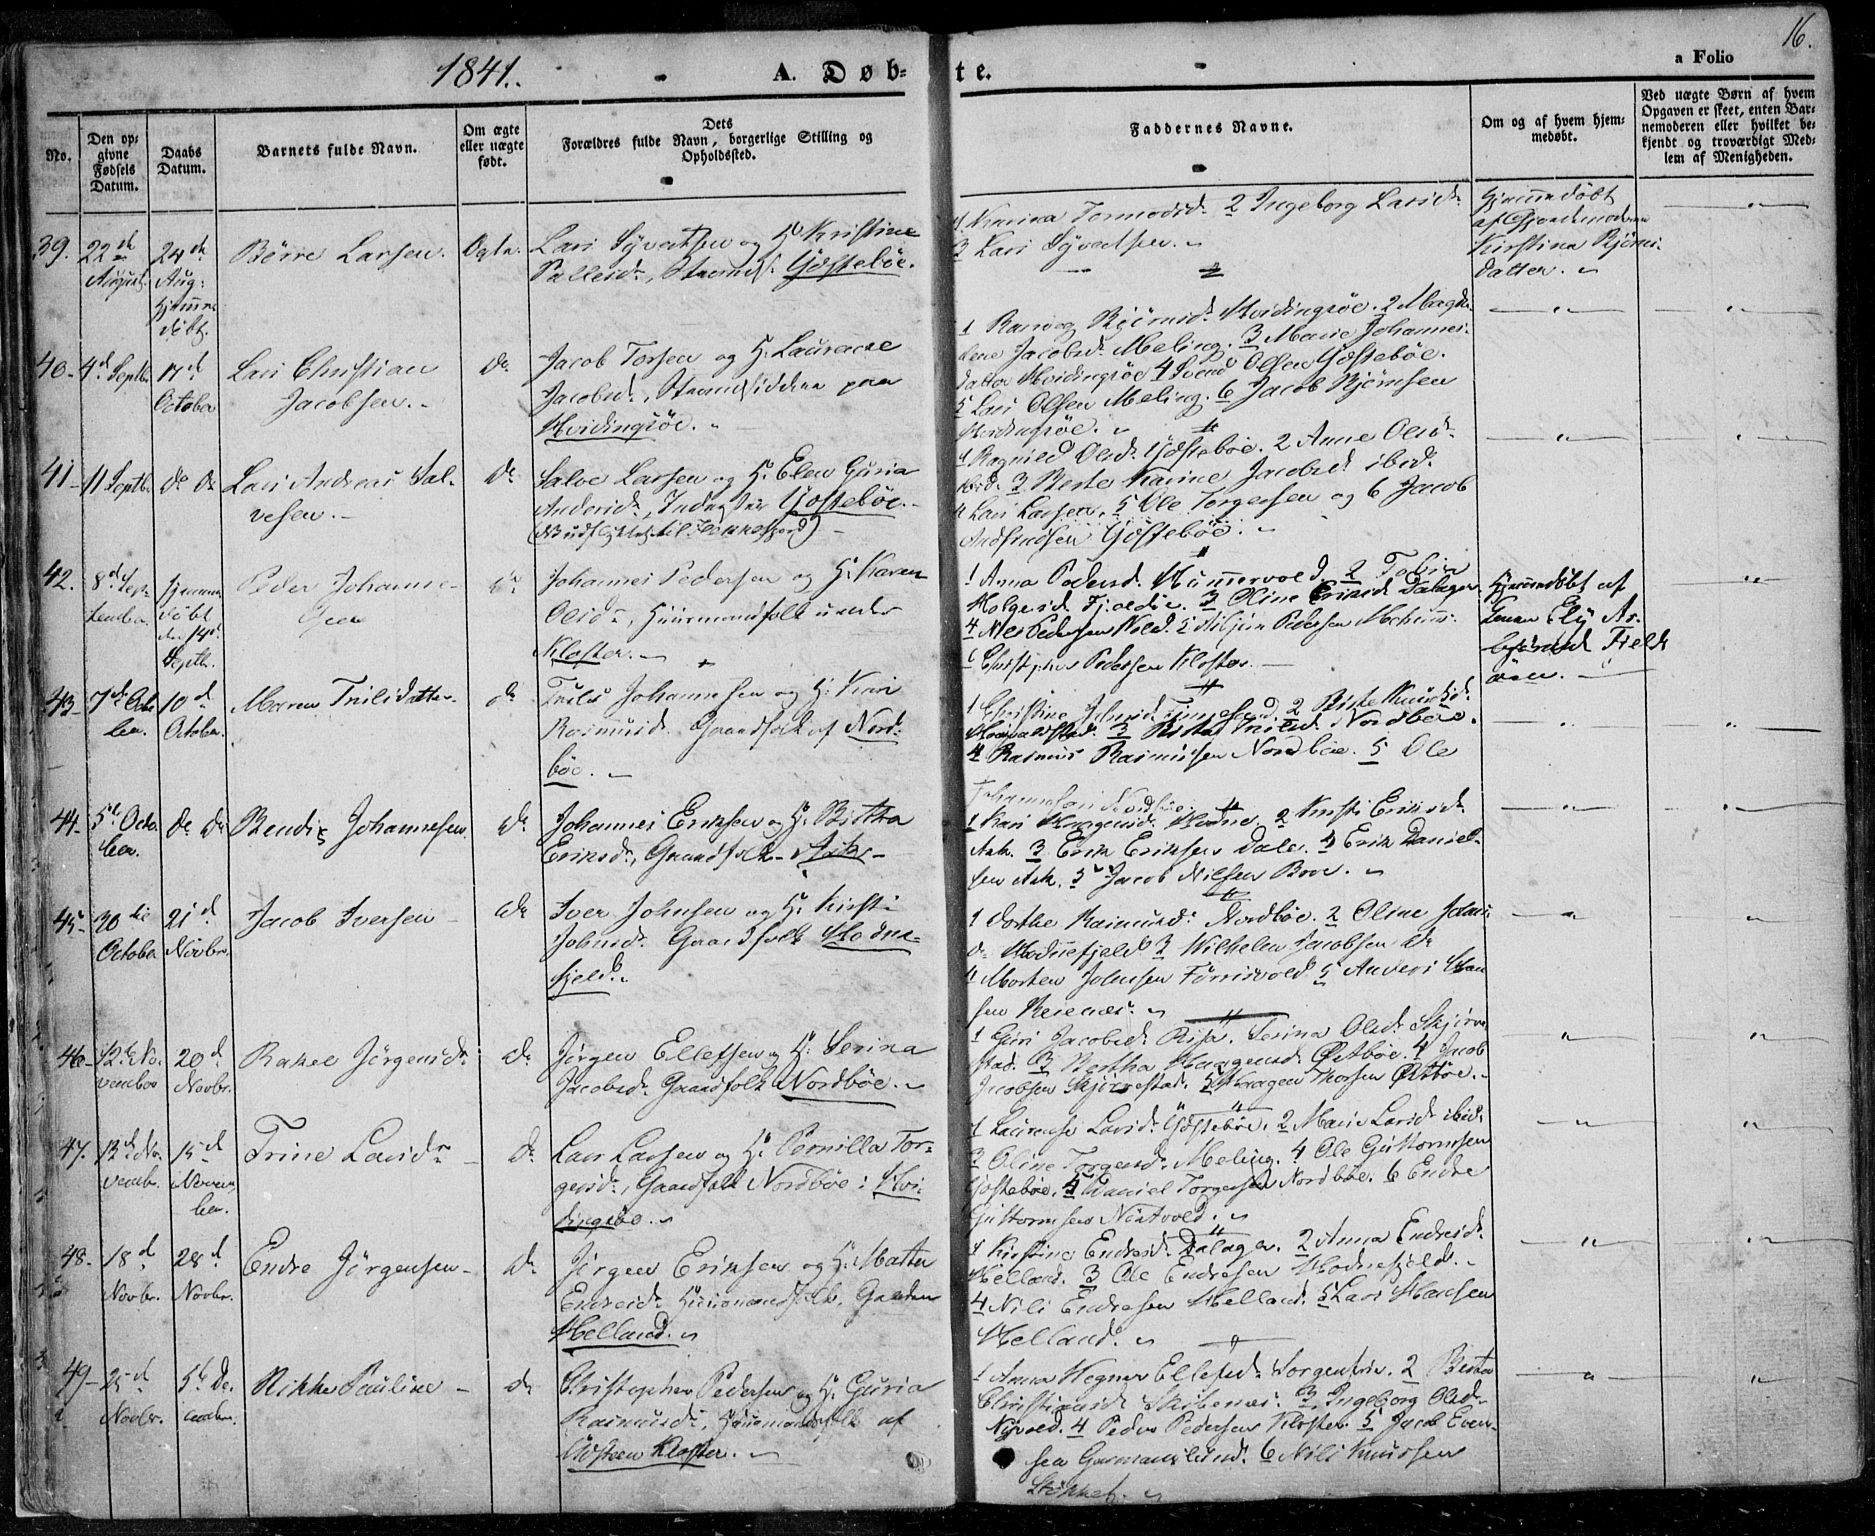 1841.
A. Døb-
te.
16.
a Folio
No.
Den op-
givne
Fødsels
Datum.
Daabs
Datum.
Barnets fulde Navn.
Om ægte
eller uægte
født.
Dets
Forældres fulde Navn, borgerlige Stilling og
Opholdssted.
Faddernes Navne.
Om og af hvem hjem-
medøbt.
Ved uægte Børn af hvem
Opgaven er skeet, enten Bar-
nemoderen eller hvilket be-
kjendt og troværdigt Med-
lem af Menigheden.
39.
22de
August.
24de
Aug:
hjemme
døbt.
Børre Larsen.
Ægte.
Lars Syvertsen og H. Kristine
Pallesdr, Strands. Gjostebøe.
1 Karina Tormodsdr 2 Ingeborg Larsdr
3 Lars Syvertsen.
Hjemmedøbt
af Gjordemoderen
Kirstina Bjørns-
datter.
40-
4d Septbr.
17d
October
Lars Christian
Jacobsen.
Do
Jacob Torsen og H. Laurence
Jacobsdr, Strandsiddere paa
Hvidingsöe.
1 Ranveg Bjørnsdr Hvidingsöe. 2 Magda-
lene Jacobsdr Meling. 3 Marie Johannes-
datter Hvidingsöe 4 Svend Olsen Gjostebøe.
5 Lars Olsen Meling. 6 Jacob Bjørnsen
Hvidingsöe.
41-
11 Septbr.
do do
Lars Andreas Sal-
vesen.
Do
Salve Larsen og H. Elen Guria
Andersdr, Inderster Gjostebøe.
1 Ragnild Olsdr Gjostebøe. 2 Anne Olsdr
ibid. 3 Berte Karine Jacobsdr ibid.
4 Lars Larsen. 5 Ole Torgersen og 6 Jacob
Gjostebøe.
42.
8d Sep-
tember.
hjemme
døbt
den 14de
Septbr.
Peder Johanne-
sen
do
Johannes Pedersen og H. Karen
Olsdr, Huusmandsfolk under
Kloster.
1 Anna Pedersdr Hummervold. 2
Fjeldøe. 3 Oline Eriksd Dalager
4 Nils Pedersen Vold. 5 Pedersen
6 Christopher Pedersen Kloster.
Hjemmedøbt af
Fjeld-
øen.
43-
7de Octo
ber.
10d
October.
Maren Trulsdatter
do
Truls Johannesen og H. Kari
Rasmusd. Gaardfolk af Nord-
bøe.
1 Christine 2 Birte Knudsdr
3 Berta Trulsd Nordbøe.
4 Rasmus Rasmussen Nordbøe. 5 Ole
Johannesen Nordbøe.
44-
5te Octo-
ber.
do do
Bendix Johannesen
do
Johannes Eriksen og H. Birtha
Eriksdr, Gaardfolk - Ask -
1 Kari Haagensdr Hodne. 2 Kirsti Eriksdr
Ask. 3 Erik Eriksen Dale. 4 Erik Daniel-
sen Ask. 5 Jacob Nilsen Broe.
45-
30die
October
21d
Novbr.
Jacob Iversen
do
Iver Johnsen og H. Kirsti
Johnsdr. Gaardfolk Hodne-
fjeld.
1 Dorthe Rasmusdr Nordbøe. 2 Oline Johns-
dr Hodnefjeld 3 Wilhelm Jacobsen do
4 Morten Johnsen Førrisvold 5 Anders Han-
sen Reienæs.
46-
12te No-
vember
20d
Novbr.
Rakel Jørgensdr
do
Jørgen Ellefsen og H. Serina
Jacobsdr Gaardfolk Nordbøe.
1 Guri Jacobsdr Risa. Serina Olsdr Skjørve-
stad. 3 Bertha Haagensdr Østbøe. 4 Jacob
Jacobsen Skjørvestad. 5 Haagen Thorsen Østbøe.
47.
13de No-
vembr.
15d
Novem-
ber.
Trine Larsdr
do
Lars Larsen og H. Pernilla Tor-
gersdr, Gaardfolk Nordbøe: Hvi-
dingsöe.
1 Laurense Larsdr Gjostebøe. 2 Marie Larsdr ibid.
3 Oline Torgersdr Meling. 4 Ole Guttormsen
Gjostebøe. 5 Daniel Torgersen Nordbøe. 6 Endre
Guttormsen
48.
18d
Novbr.
28d
Novbr.
Endre Jørgensen
do
Jørgen Eriksen og H. Matta
Endresdr Huusmandsfolk. Gaarden
Helland.
1 Kirstine Endresdr Dalager. 2 Anna Endresdr
Helland. 3 Ole Endresen Hodnefjeld.
4 Nils Endresen Helland. 5 Lars Hansen
Helland.
49-
25d
Novbr.
5te De-
cember.
Rikke Pauline
do
Christopher Pedersen og H. Guria
Rasmusdr, Huusmandsfolk af
Utsteen Kloster.
1 Anna Wegner Ellefsdr Sorgenfrie. 2 Berta
Christiansdr Skibenæs. 3 Ingeborg Olsdr
4 Peder Pedersen Kloster. 5 Jacob Even-
sen 6 Nils Knudsen